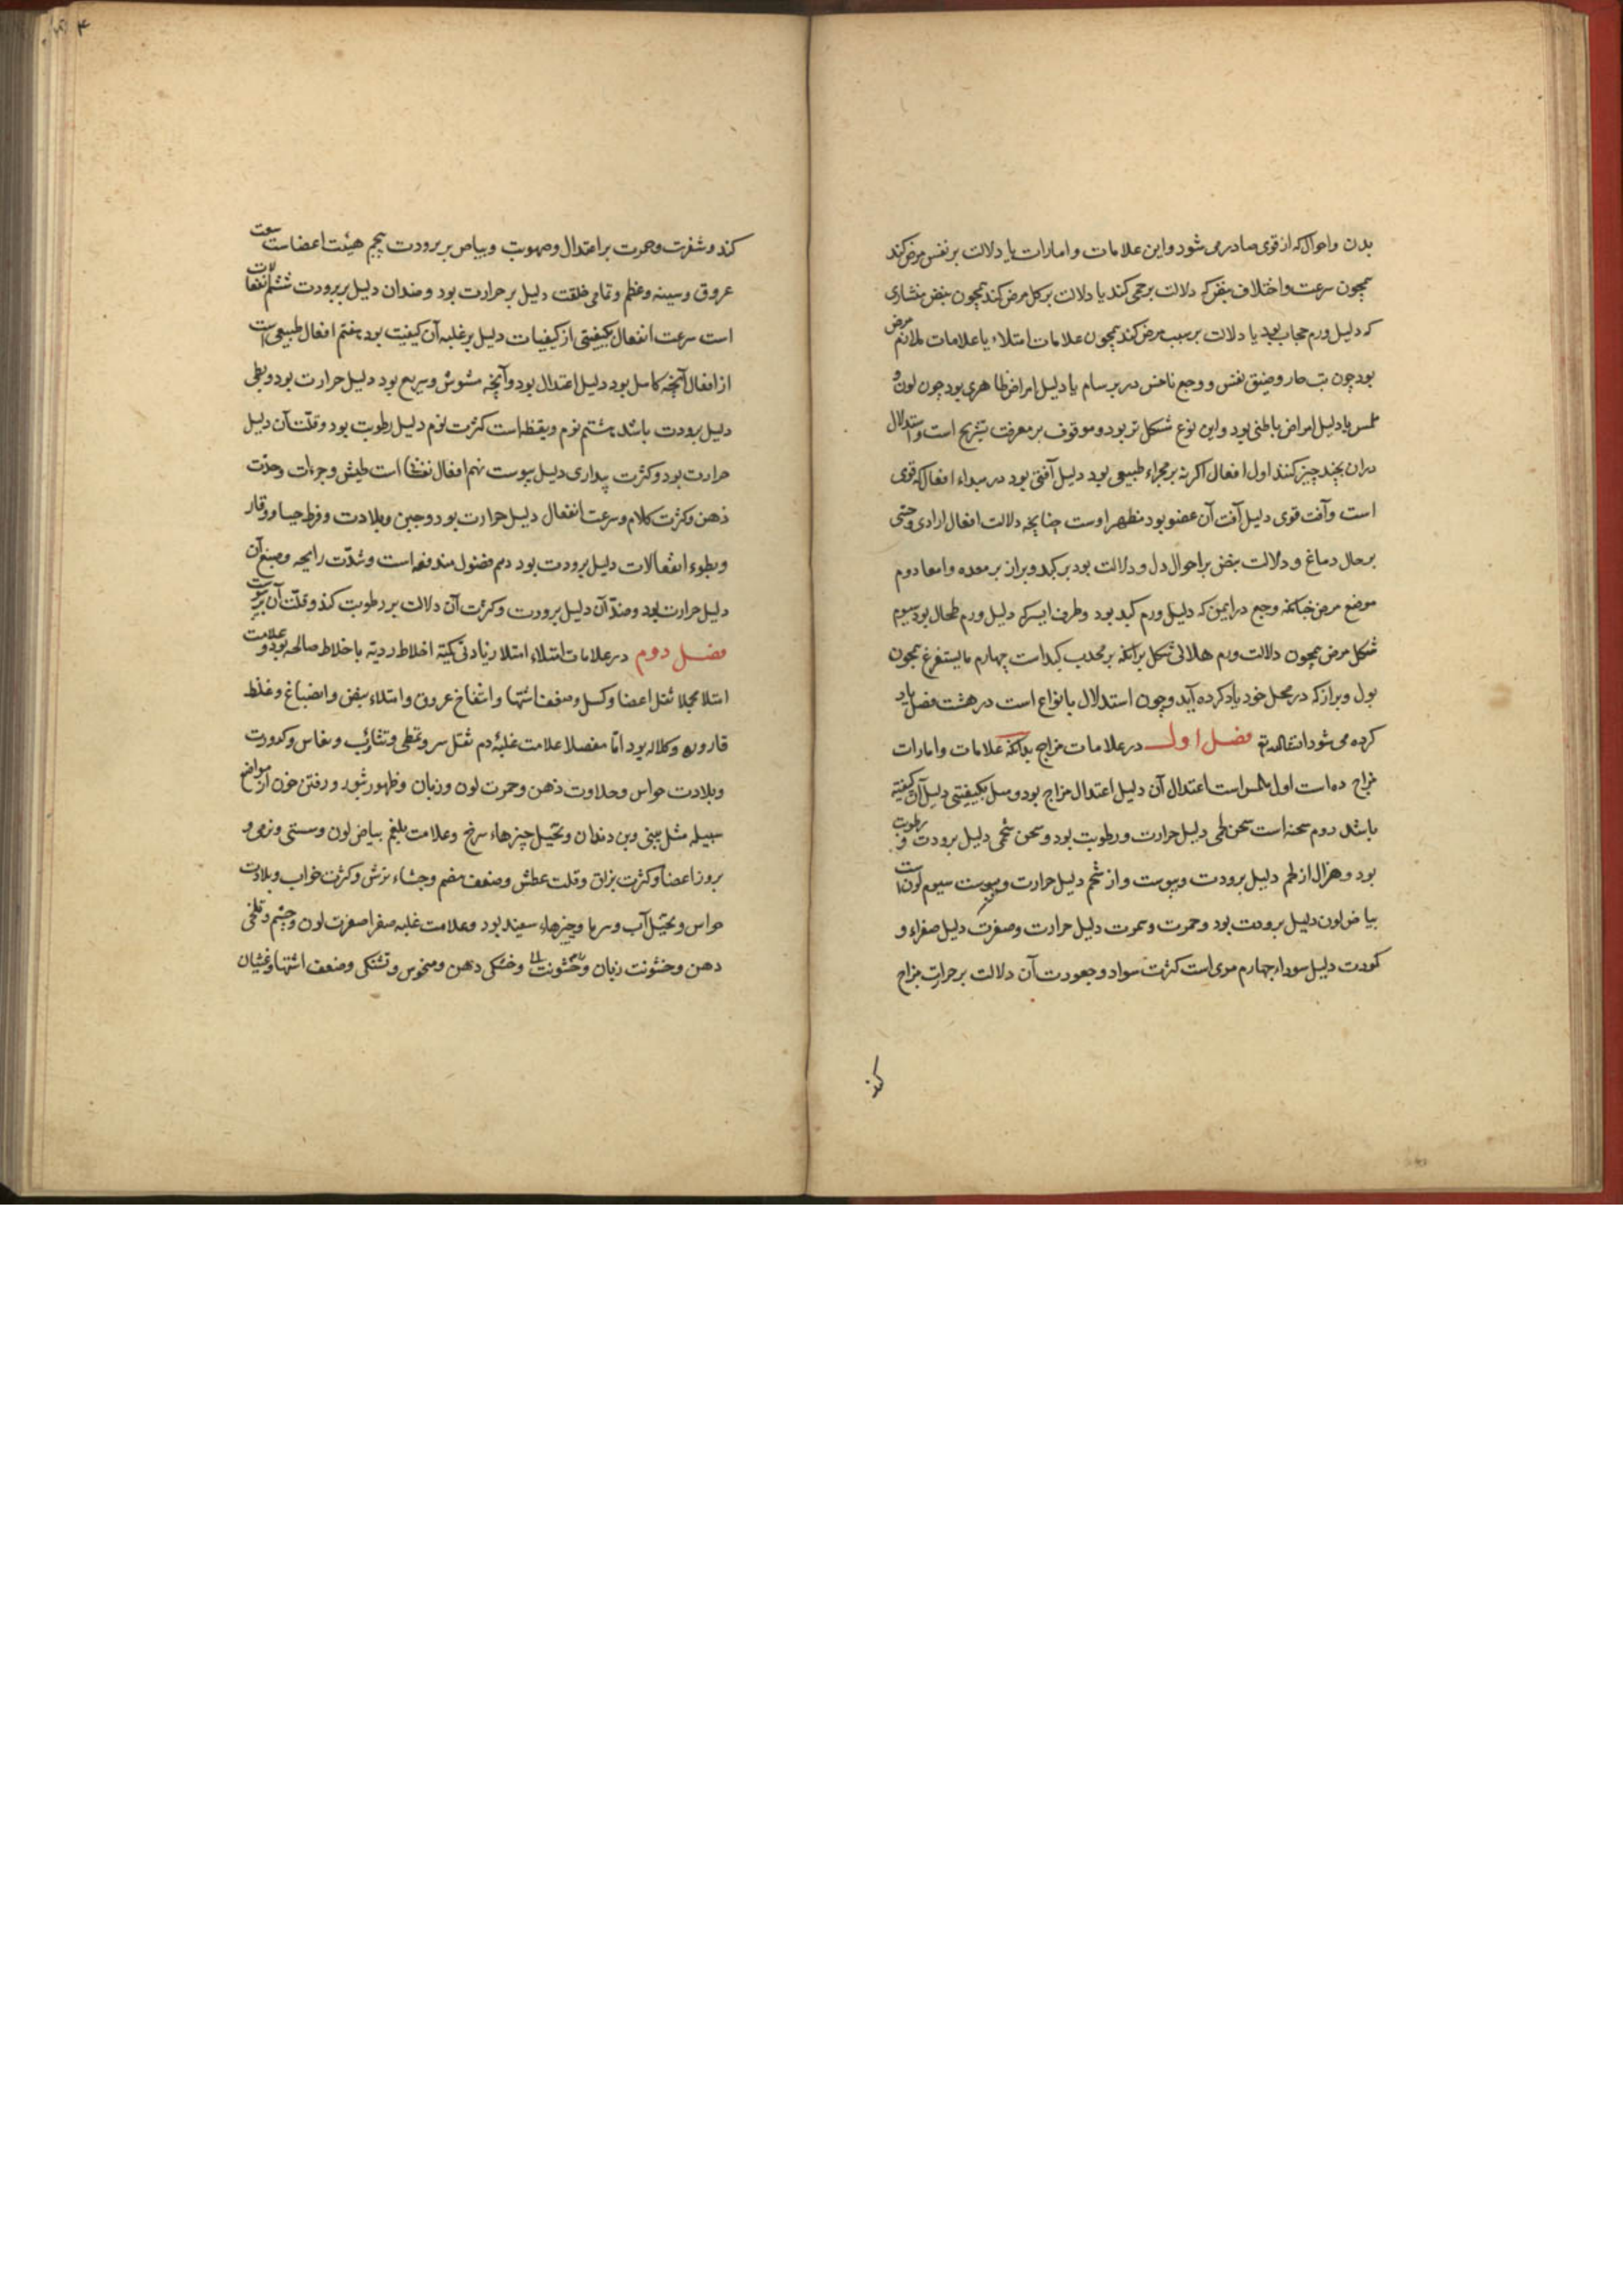 بدن واحوال که از قوی صادر می شود واین علامات وامارات یا دلالت بر نفس مرض کند
همچون سرعت واختلاف نبض که دلالت بر حمی کند یا دلالت بر کل مرض کند همچون نبض منشاری
که دلیل ورم حجاب بود یا دلالت بر سبب مرض کند همچون علامات امتلاء یا علامات لازم مرض
بود چون تب حار وضیق نفس ووجع ناخس در برسام یا دلیل امراض ظاهری بود چون لون و
ملمس یا دلیل امراض باطنی بود واین نوع مشکل تر بود وموقوف بر معرفت تشریح است واستدلال
دران بچند چیز کنند اول افعال اکر نه بر مجراء طبیعی بود دلیل آفتی بود در مبداء افعال که قوی
است وآفت قوی دلیل آفت آن عضو بود مظهر اوست چنانچه دلالت افعال ارادی وحسی
بر حال دماغ ودلالت نبض بر احوال دل ودلالت بود بر کبد وبراز بر معده وامعا دوم
موضع مرض چنانکه وجع در ایمن که دلیل ورم کبد بود وطرف ایسر که دلیل ورم طحال بود سیوم
شکل مرض همچون دلالت ورم هلالی شکل برانکه بر محدب کبد است چهارم ما یستفرغ همچون
بول وبراز که در محل خود یاد کرده آید وچون استدلال بانواع است در هشت فصل یاد
کرده می شود انشاالله تع فصل اول در علامات مزاج بدانکه علامات وامارات
مزاج ده است اول ملمس است اعتدال آن دلیل اعتدال مزاج بود ومیل بکیفیتی دلیل آن کیفیته
باشد دوم سحنه است سحن لحمی دلیل حرارت ورطوبت بود وسحن شحمی دلیل برودت ورطوبت
بود وهزال از لحم دلیل برودت ویبوست واز شحم دلیل حرارت ویبوست سیوم لون است
بیاض لون دلیل برودت بود وحمرت وسمرت دلیل حرارت وصفرت دلیل صفراء و
کمودت دلیل سوداء چهارم موی است کثرت سواد وجعودت آن دلالت بر حرارت مزاج
کند
کند وشقرت وحمرت بر اعتدال وصهوبت وبیاض بر برودت پنجم هیئت اعضاست سعت
عروق وسینه وعظم وتمامی خلقت دلیل بر حرارت بود وضد ان دلیل بر برودت ششم انفعالات
است سرعت انفعال بکیفیتی از کیفیات دلیل بر غلبه آن کیفیت بود هفتم افعال طبیعی است
از افعال آنچه کامل بود دلیل اعتدال بود وآنچه مشوش وسریع بود دلیل حرارت بود وبطی
دلیل برودت باشد هشتم نوم ویقظه است کثرت نوم دلیل رطوبت بود وقلت آن دلیل
حرارت بود وکثرت بیداری دلیل یبوست نهم افعال نفسانی است طیش وجرءات وحدت
ذهن وکثرت کلام وسرعت انفعال دلیل حرارت بود وجبن وبلادت وفرط حیا ووقار
وبطوء انفعالات دلیل برودت بود دهم فضول مندفعه است وشدت رایحه وصبغ آن
دلیل حرارت بود وضد آن دلیل برودت وکثرت آن دلالت بر رطوبت کند وقلت آن بر یبوست
فصل دوم در علامات امتلاء امتلا زیادتی کمیته اخلاط ردیه یا اخلاط صالحه بود وعلامت
امتلا مجملا ثقل اعضا وکسل وضعف اشتها وانتفاخ عروق وامتلاء نبض وانصباغ وغلظ
قاروره وکلاله بود اما مفصلا علامت غلبه دم ثقل سر وتمطی وتثاؤب ونعاس وکدورت
وبلادت حواس وحلاوت ذهن وحمرت لون وزبان وظهور بثور ورفتن خون از مواضع
سبیله مثل بینی وبن دندان وتخیل چیزهاء سرخ وعلامت بلغم بیاض لون وسستی ونرمی و
بروز اعضا وکثرت بزاق وقلت عطش وضعف هضم وجشاء ترش وکثرت خواب وبلادت
حواس وتخیل آب وسرما وچیزهاء سفید بود وعلامت غلبه صفرا صفرت لون وچشم وتلخی
دهن وخشونت زبان وخشونت وخشکی دهن ومنخوس وتشنکی وضعف اشتها وغثیان